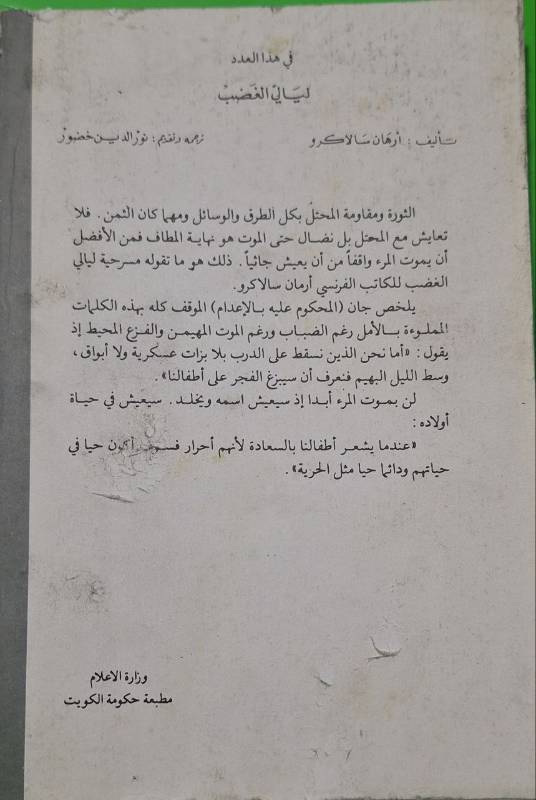 في هذا العدد
ليالي الغضب
تأليف : أرمان سالاكرو ترجمة وتقديم : نور الدين خضور
الثورة ومقاومة المحتل بكل الطرق والوسائل ومهما كان الثمن . فلا
تعايش مع المحتل بل نضال حتى الموت هو نهاية المطاف فمن الأفضل
أن يموت المرء واقفاً من أن يعيش جاثياً . ذلك هو ما تقوله مسرحية ليالي
الغضب للكاتب الفرنسي أرمان سالاكرو.
يلخص جان (المحكوم عليه بالإعدام) الموقف كله بهذه الكلمات
المملوءة بالأمل رغم الضباب ورغم الموت المهيمن والفزع المحيط إذ
يقول : «أما نحن الذين نسقط على الدرب بلا بزات عسكرية ولا أبواق ،
وسط الليل البهيم فنعرف أن سيبزغ الفجر على أطفالنا» .
لن يموت المرء أبدا إذ سيعيش اسمه ويخلد . سيعيش في حياة
أولاده :
«عندما يشعر أطفالنا بالسعادة لأنهم أحرار فسوف أكون حيا في
حياتهم ودائما حيا مثل الحرية» .
وزارة الاعلام
مطبعة حكومة الكويت